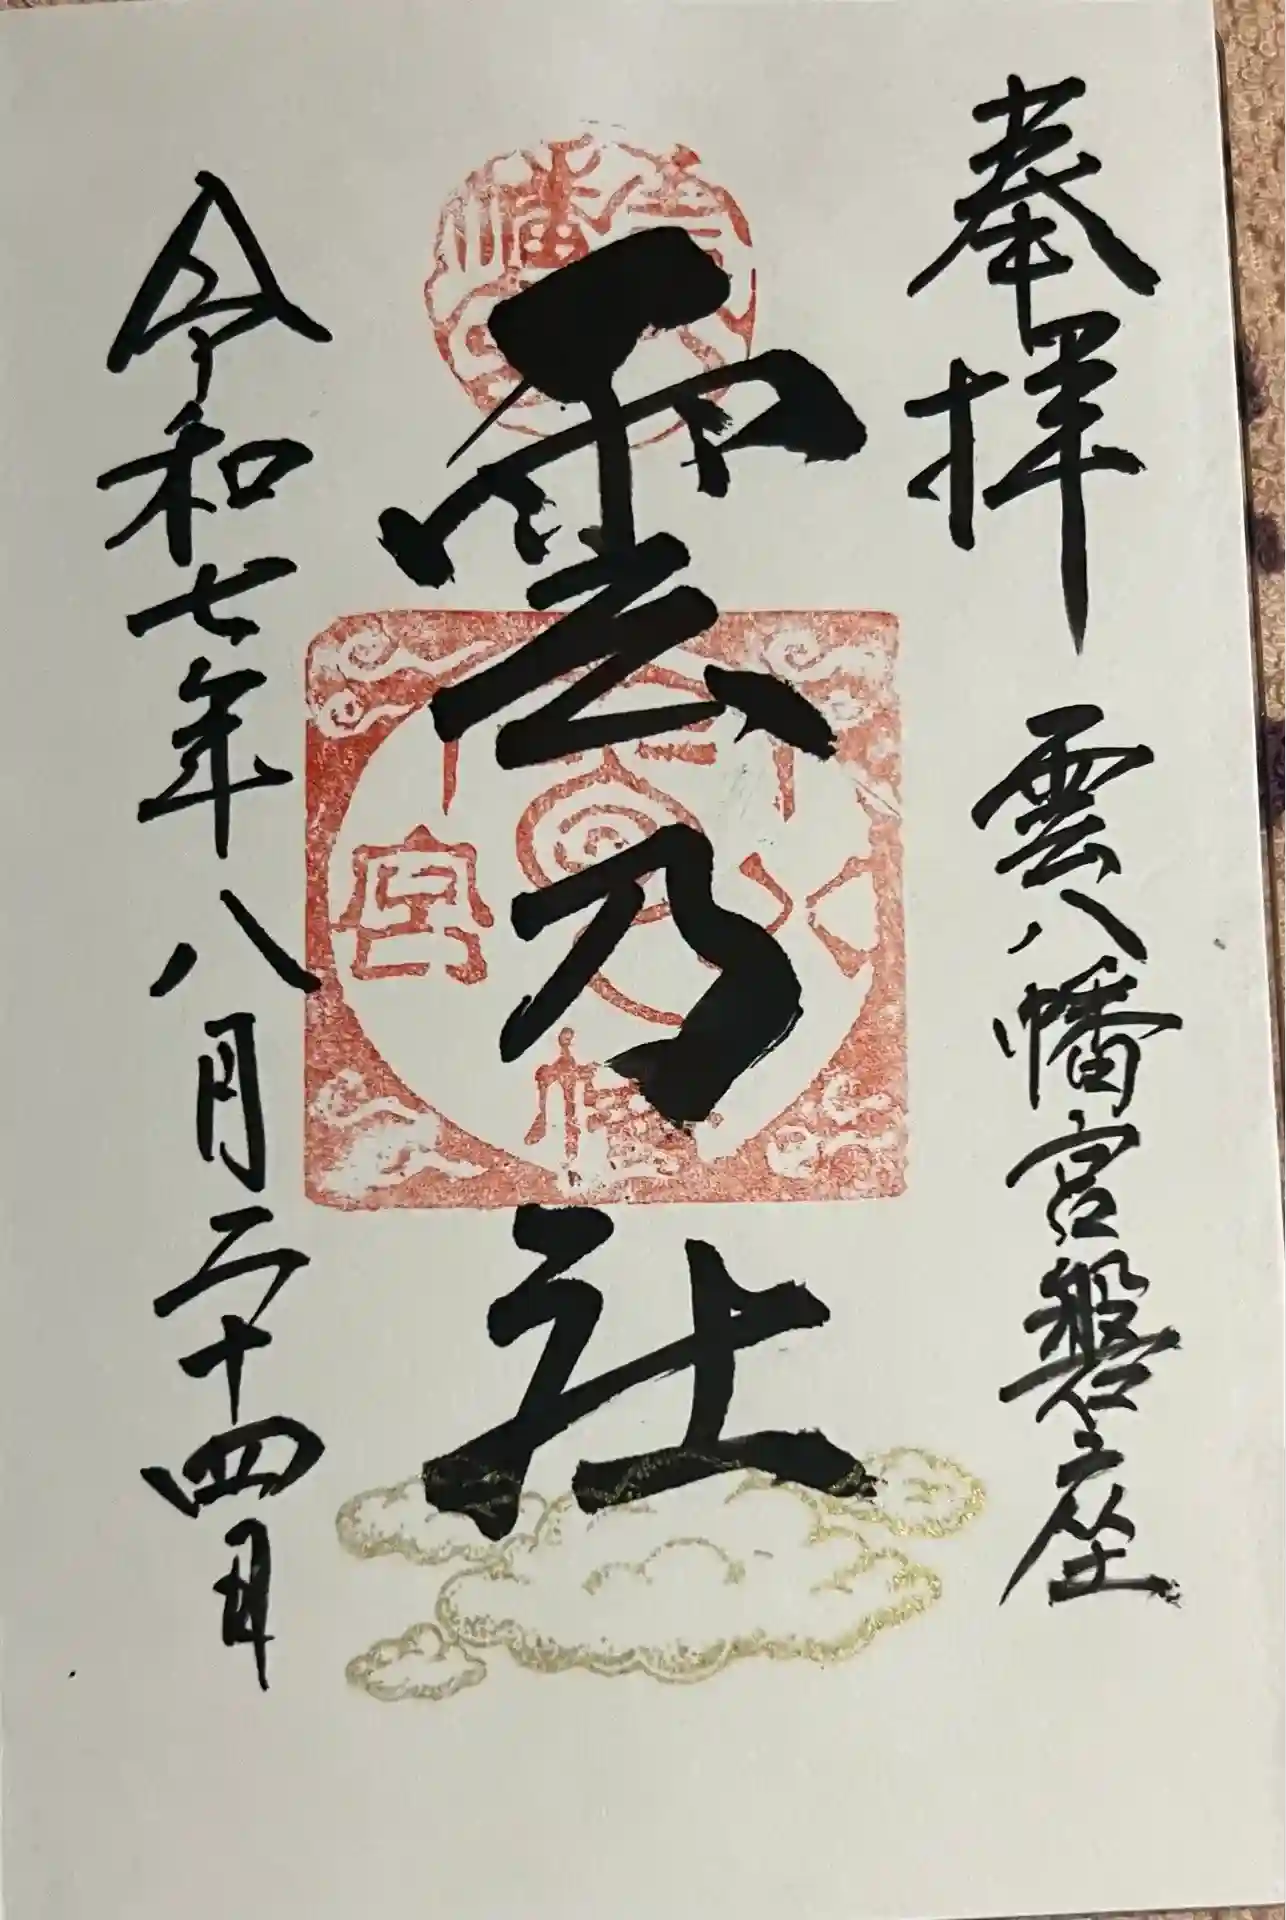 奉拝
雲八幡宮磐座
雲乃社
宮
令和七年八月二十四日